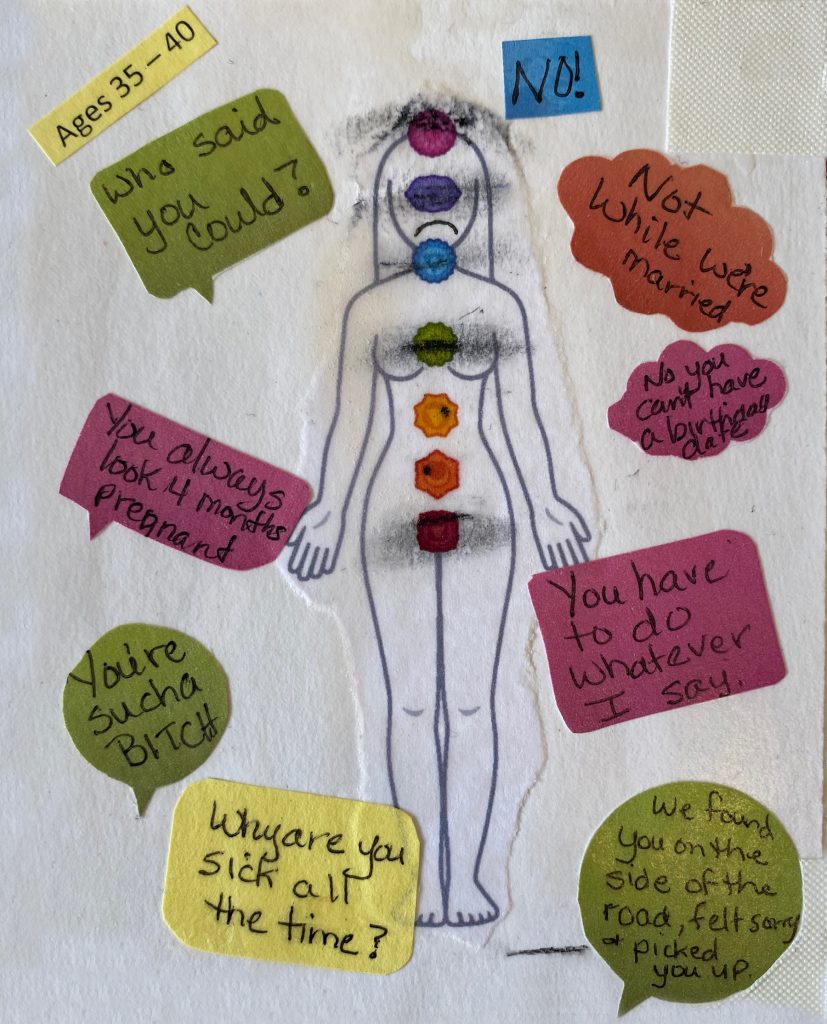 Ages 35 – 40
NO!
Who said
you
could?
Not
While we're
married
No you
can't have
a birthday
date
You always
look 4 months
pregnant
You have
to do
whatever
I say.
You're
sucha
BITCH
Why are you
sick all
the time?
We found
you on the
side of the
road, felt sorry
& picked
you up.